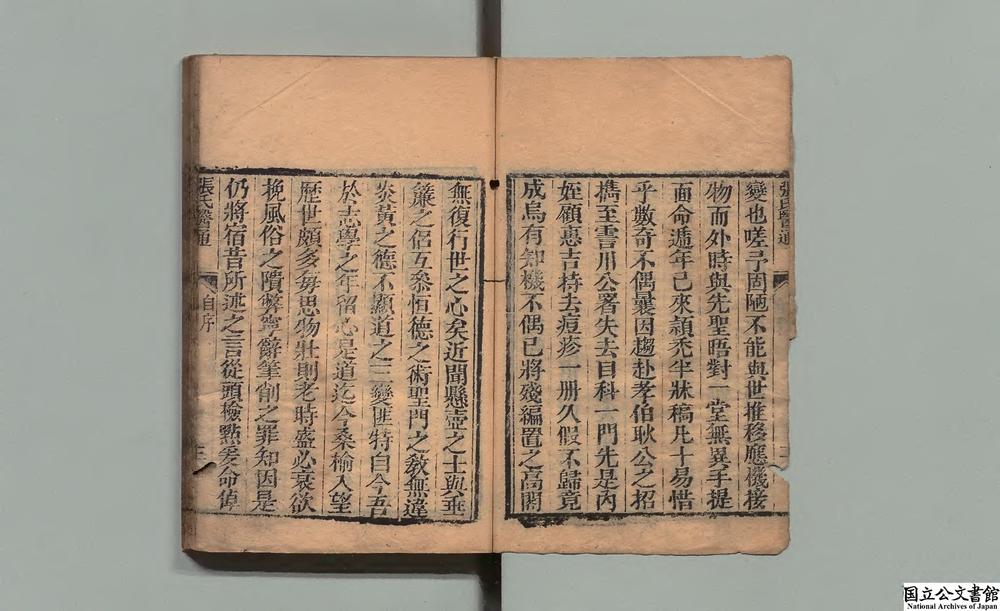 張氏醫通
變也嗟予固陋不能與世推移應機接
物而外時與先聖晤對一堂無異手提
面命遞年已來頴禿半牀稿凡十易惜
乎數奇不偶曩因趨赴孝伯耿公之招
攜至霅川公署失去目科一門先是內
姪顧惠吉持去痘疹一册久假不歸竟
成烏有知機不偶已將殘編置之高閣
無復行世之心矣近聞懸壺之士與垂
簾之侶互叅恒德之術聖門之敎無違
炎黃之德不顯道之三變匪特自今吾
於志學之年留心是道迄今桑榆入望
歷世頗多每思物壯則老時盛必衰欲
挽風俗之隤弊寧辭筆削之罪知因是
仍將宿昔所述之言從頭檢點爰命倬
張氏醫通
自序
三
国立公文書館
National Archives of Japan